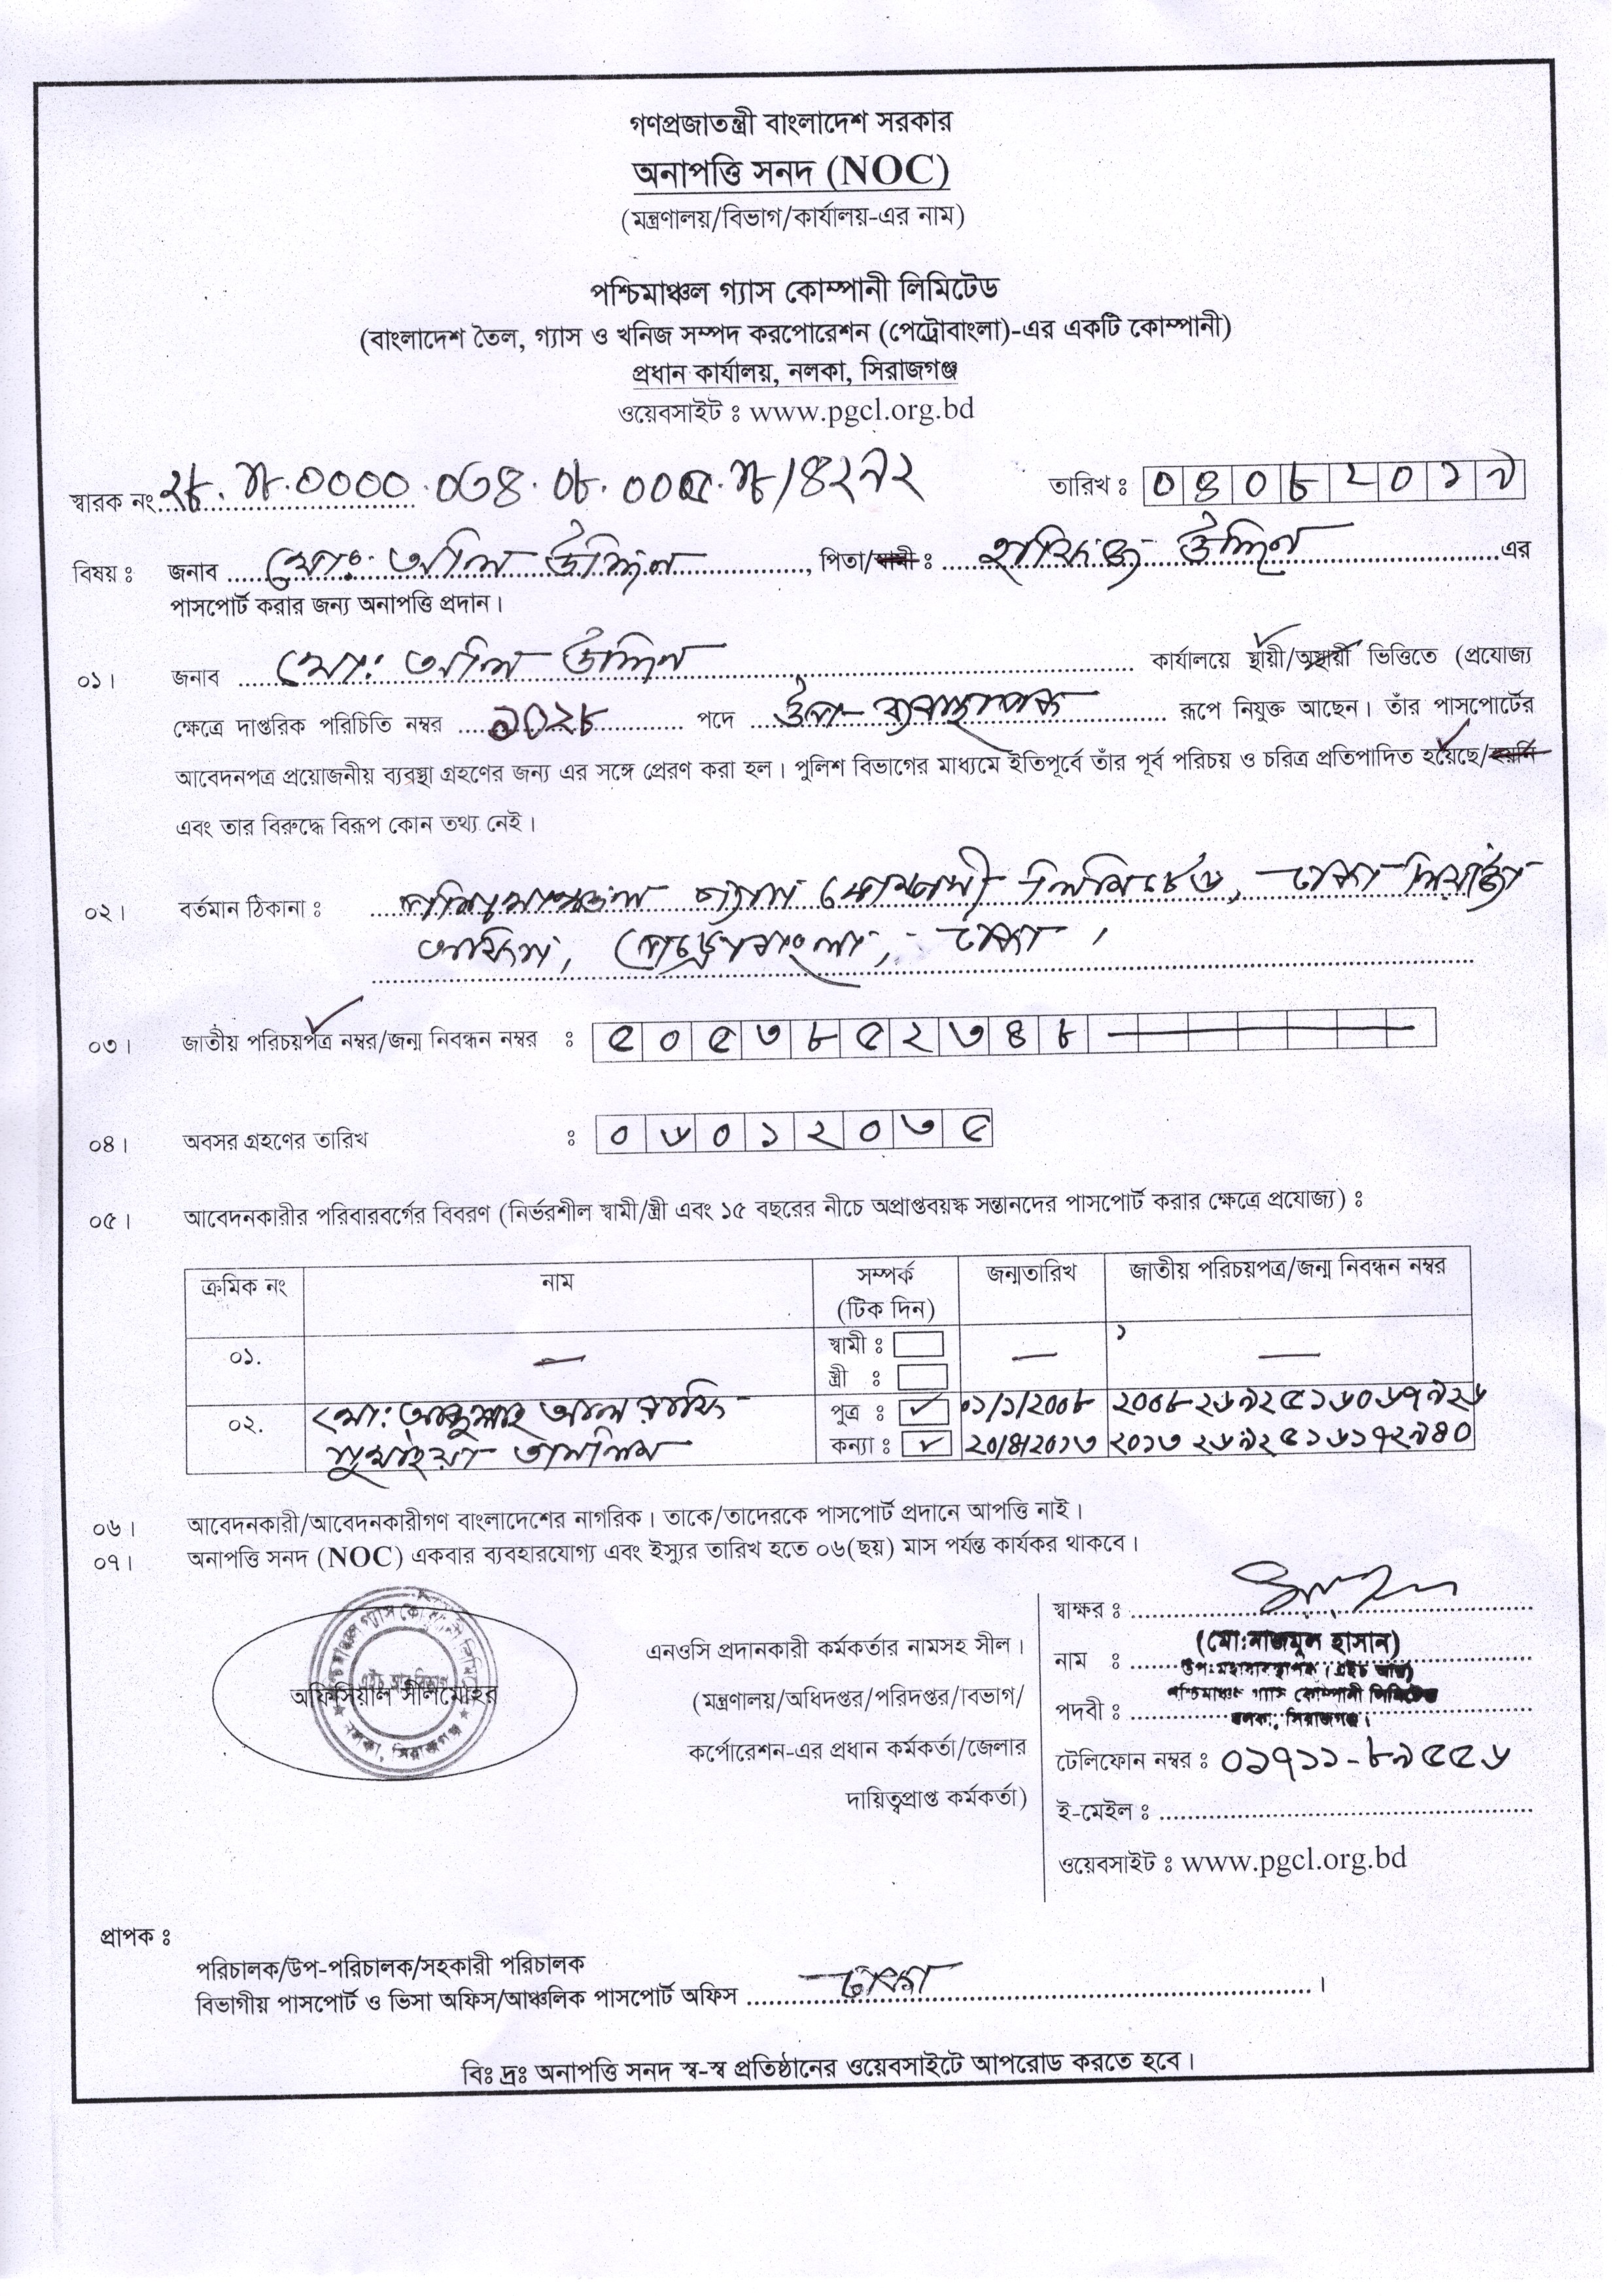 গণপ্রজাতন্ত্রী বাংলাদেশ সরকার
অনাপত্তি সনদ (NOC)
(মন্ত্রণালয়/বিভাগ/কার্যালয়-এর নাম)
পশ্চিমাঞ্চল গ্যাস কোম্পানী লিমিটেড
(বাংলাদেশ তৈল, গ্যাস ও খনিজ সম্পদ করপোরেশন (পেট্রোবাংলা)-এর একটি কোম্পানী)
প্রধান কার্যালয়, নলকা, সিরাজগঞ্জ
ওয়েবসাইট ঃ www.pgcl.org.bd
স্মারক নং
তারিখ ঃ ০৪০৮২০১৯
বিষয় ঃ জনাব মোঃ অলি উদ্দিন, পিতা/স্বামী ঃ হাফিজ উদ্দিন এর
পাসপোর্ট করার জন্য অনাপত্তি প্রদান।
০১। জনাব মোঃ অলি উদ্দিন কার্যালয়ে স্থায়ী/অস্থায়ী ভিত্তিতে (প্রযোজ্য
ক্ষেত্রে দাপ্তরিক পরিচিতি নম্বর ৯০২৮ পদে উপ-ব্যবস্থাপক রূপে নিযুক্ত আছেন। তাঁর পাসপোর্টের
আবেদনপত্র প্রয়োজনীয় ব্যবস্থা গ্রহণের জন্য এর সঙ্গে প্রেরণ করা হল। পুলিশ বিভাগের মাধ্যমে ইতিপূর্বে তাঁর পূর্ব পরিচয় ও চরিত্র প্রতিপাদিত হয়েছে/হয়নি
এবং তার বিরুদ্ধে বিরূপ কোন তথ্য নেই।
০২। বর্তমান ঠিকানা ঃ পশ্চিমাঞ্চল গ্যাস কোম্পানী লিমিটেড, ঢাকা লিয়াজোঁ
অফিস, পেট্রোবাংলা, ঢাকা।
০৩। জাতীয় পরিচয়পত্র নম্বর/জন্ম নিবন্ধন নম্বর ঃ ৫০৫৩৮৫২৩৪৮
০৪। অবসর গ্রহণের তারিখ ঃ ০৬০১২০৩৫
০৫। আবেদনকারীর পরিবারবর্গের বিবরণ (নির্ভরশীল স্বামী/স্ত্রী এবং ১৫ বছরের নীচে অপ্রাপ্তবয়স্ক সন্তানদের পাসপোর্ট করার ক্ষেত্রে প্রযোজ্য) ঃ
ক্রমিক নং নাম সম্পর্ক (টিক দিন) জন্মতারিখ জাতীয় পরিচয়পত্র/জন্ম নিবন্ধন নম্বর
০১. — স্বামী ঃ — —
স্ত্রী ঃ
০২. মোঃ আব্দুল্লাহ আল রাফি পুত্র ঃ ✓ ০১/১/২০০৮ ২০০৮২৬৯২৫১৬০৬৭৯২৬
সুমাইয়া তাসলিম কন্যা ঃ ✓ ২০/৪/২০১৩ ২০১৩২৬৯২৫১৬১৭২৯৪০
০৬। আবেদনকারী/আবেদনকারীগণ বাংলাদেশের নাগরিক। তাকে/তাদেরকে পাসপোর্ট প্রদানে আপত্তি নাই।
০৭। অনাপত্তি সনদ (NOC) একবার ব্যবহারযোগ্য এবং ইস্যুর তারিখ হতে ০৬(ছয়) মাস পর্যন্ত কার্যকর থাকবে।
অফিসিয়াল সীলমোহর
এনওসি প্রদানকারী কর্মকর্তার নামসহ সীল।
(মন্ত্রণালয়/অধিদপ্তর/পরিদপ্তর/বিভাগ/
কর্পোরেশন-এর প্রধান কর্মকর্তা/জেলার
দায়িত্বপ্রাপ্ত কর্মকর্তা)
স্বাক্ষর ঃ
নাম ঃ (মোঃ নাজমুল হাসান)
উপ-মহাব্যবস্থাপক (এইচ আর)
পদবী ঃ পশ্চিমাঞ্চল গ্যাস কোম্পানী লিমিটেড
নলকা, সিরাজগঞ্জ।
টেলিফোন নম্বর ঃ ০১৭১১-৮৯৫৫৬
ই-মেইল ঃ
ওয়েবসাইট ঃ www.pgcl.org.bd
প্রাপক ঃ
পরিচালক/উপ-পরিচালক/সহকারী পরিচালক
বিভাগীয় পাসপোর্ট ও ভিসা অফিস/আঞ্চলিক পাসপোর্ট অফিস ঢাকা।
বিঃ দ্রঃ অনাপত্তি সনদ স্ব-স্ব প্রতিষ্ঠানের ওয়েবসাইটে আপরোড করতে হবে।